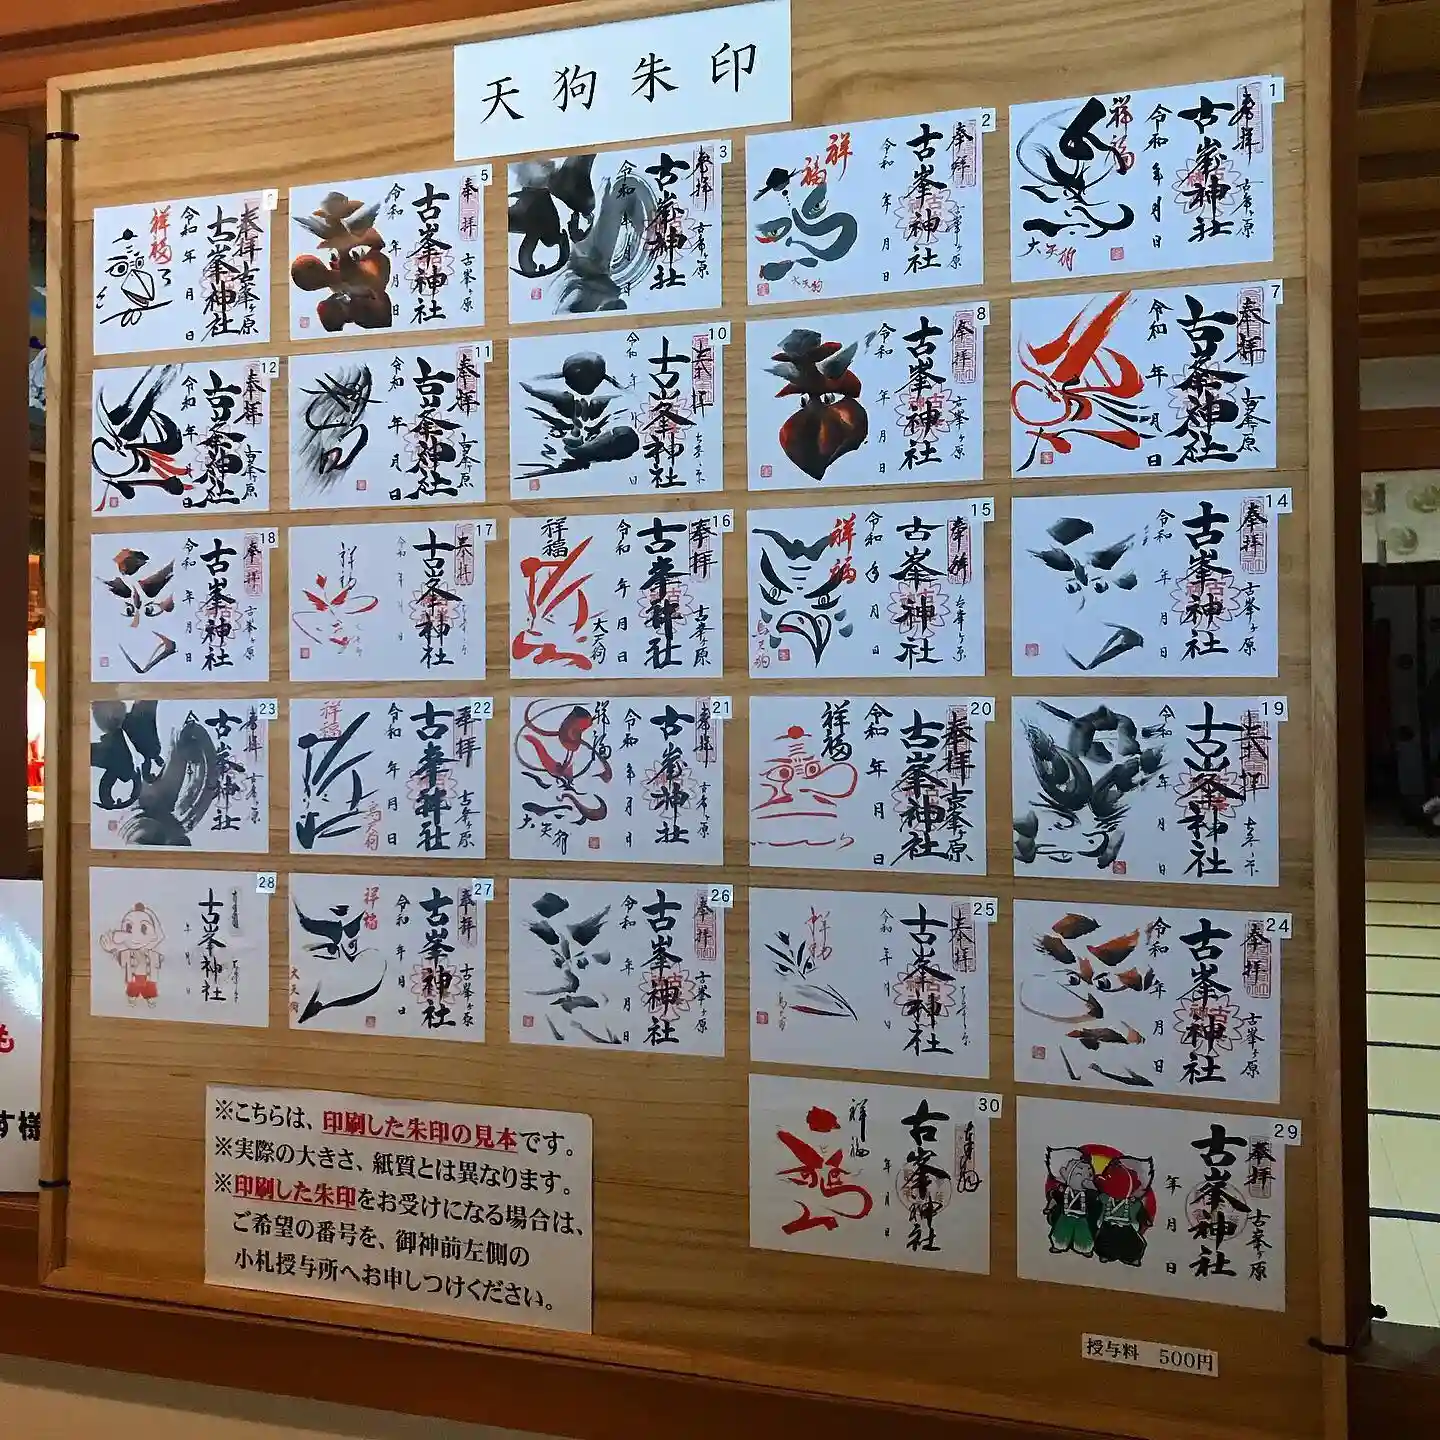 天狗朱印
1
奉拝
古峯ヶ原
古峯神社
令和 年 月 日
祥福
大天狗
2
奉拝
古峯ヶ原
古峯神社
令和 年 月 日
祥福
大天狗
3
奉拝
古峯ヶ原
古峯神社
令和 年 月 日
5
奉拝
古峯ヶ原
古峯神社
令和 年 月 日
奉拝
古峯ヶ原
古峯神社
令和 年 月 日
祥福
7
奉拝
古峯ヶ原
古峯神社
令和 年 月 日
8
奉拝
古峯ヶ原
古峯神社
令和 年 月 日
10
奉拝
古峯神社
令和 年 月 日
11
奉拝
古峯ヶ原
古峯神社
令和 年 月 日
12
奉拝
古峯ヶ原
古峯神社
令和 年 月 日
14
奉拝
古峯ヶ原
古峯神社
令和 年 月 日
15
奉拝
古峯ヶ原
古峯神社
令和 年 月 日
祥福
烏天狗
16
奉拝
古峯ヶ原
古峯神社
令和 年 月 日
祥福
大天狗
17
奉拝
古峯神社
令和 年 月 日
祥福
18
奉拝
古峯ヶ原
古峯神社
令和 年 月 日
19
奉拝
古峯神社
令和 年 月 日
20
奉拝
古峯ヶ原
古峯神社
令和 年 月 日
祥福
21
奉拝
古峯ヶ原
古峯神社
令和 年 月 日
祥福
大天狗
22
奉拝
古峯ヶ原
古峯神社
令和 年 月 日
祥福
烏天狗
23
奉拝
古峯ヶ原
古峯神社
24
奉拝
古峯ヶ原
古峯神社
令和 年 月 日
25
奉拝
古峯神社
令和 年 月 日
祥福
26
奉拝
古峯ヶ原
古峯神社
令和 年 月 日
27
奉拝
古峯ヶ原
古峯神社
令和 年 月 日
祥福
大天狗
28
古峯神社
年 月 日
29
奉拝
古峯ヶ原
古峯神社
年 月 日
30
古峯神社
年 月 日
祥福
※こちらは、印刷した朱印の見本です。
※実際の大きさ、紙質とは異なります。
※印刷した朱印をお受けになる場合は、
ご希望の番号を、御神前左側の
小札授与所へお申しつけください。
授与料 500円
も
す様